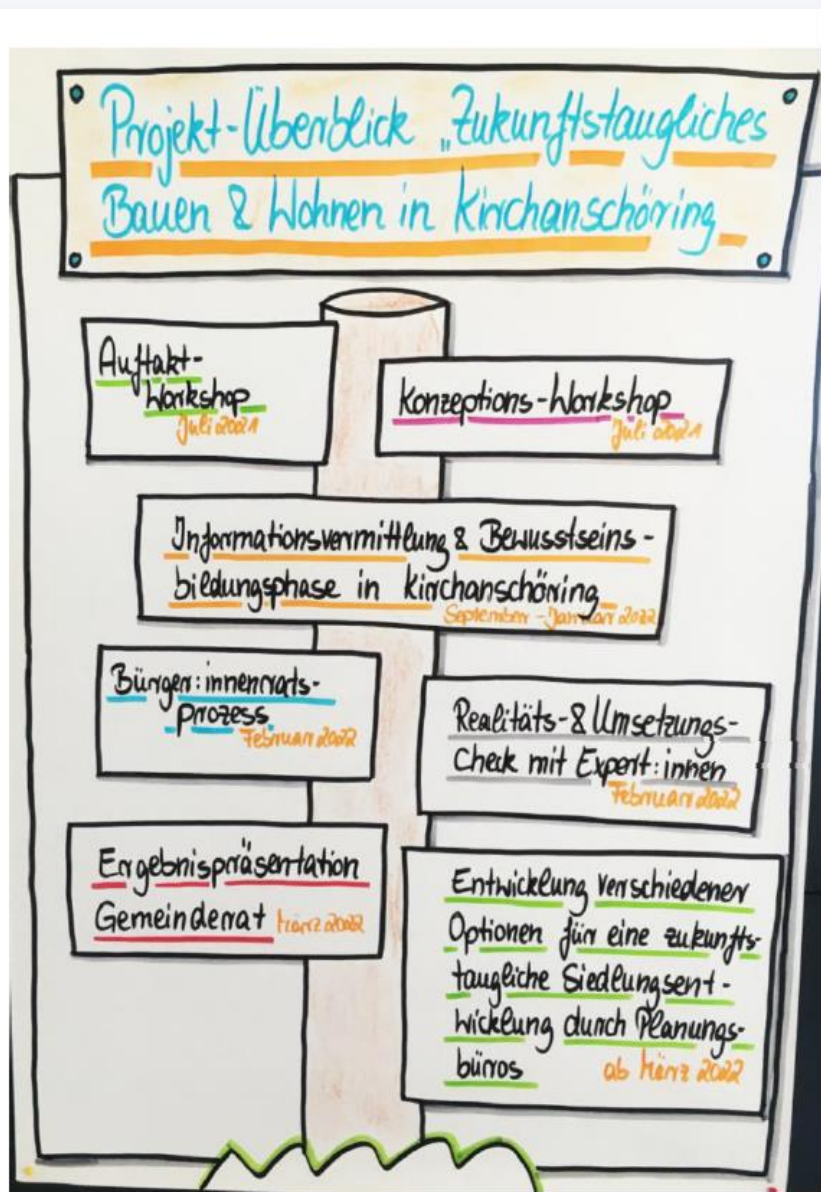 Projekt-Überblick „Zukunftstaugliches
Bauen & Wohnen in Kirchanschöring
Auftakt-
Workshop
Juli 2021
Konzeptions-Workshop
Juli 2021
Informationsvermittlung & Bewusstseins-
bildungsphase in Kirchanschöring
September - Januar 2022
Bürger:innenrats-
prozess
Februar 2022
Realitäts- & Umsetzungs-
Check mit Expert:innen
Februar 2022
Ergebnispräsentation
Gemeinderat März 2022
Entwicklung verschiedener
Optionen für eine zukunfts-
taugliche Siedlungsent-
wicklung durch Planungs-
büros ab März 2022